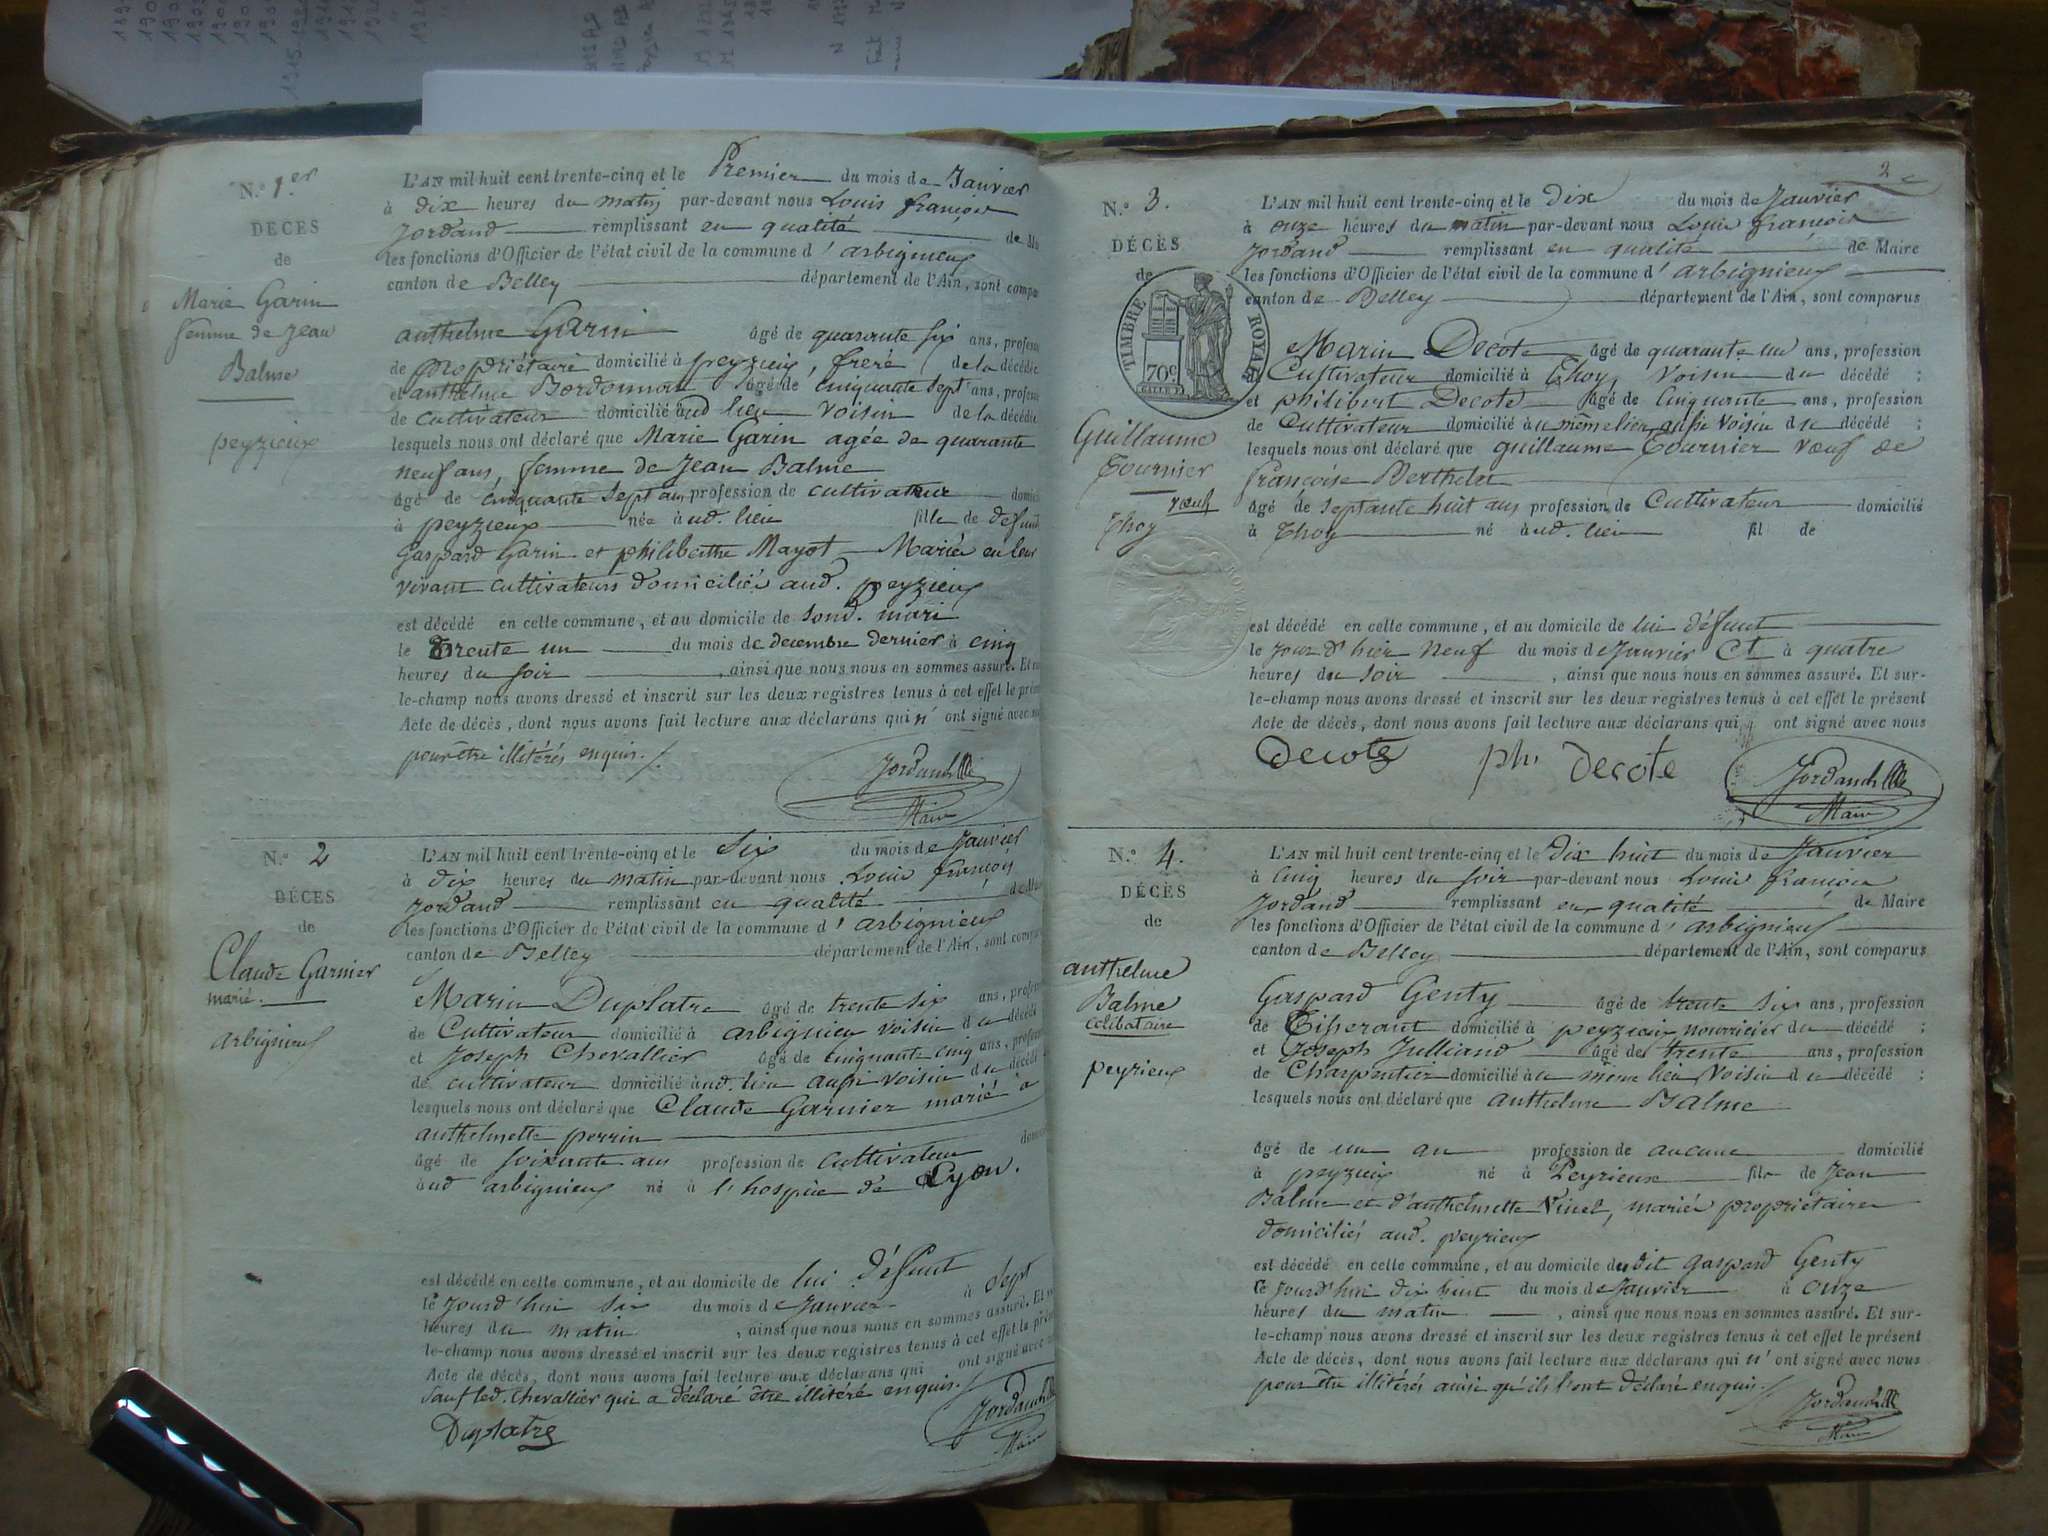 N.º 1.er
DECES
de
Marie Garin
femme de Jean
Balme
peyzieux
L'AN mil huit cent trente-cinq et le Premier du mois de Janvier
à dix heures du matin par-devant nous Louis françois
Jordand remplissant en qualité de Ma
les fonctions d'Officier de l'état civil de la commune d'arbignieux
canton de Belley département de l'Ain, sont compa
anthelme Garin âgé de quarante six ans, profess
de propriétaire domicilié à peyzieux, frere de la décédée
et anthelme Bordonnou âgé de cinquante sept ans, profess
de cultivateur domicilié aud lieu voisin de la décédée
lesquels nous ont déclaré que Marie Garin agée de quarante
neuf ans, femme de Jean Balme
âgé de cinquante sept ans profession de cultivateur domici
à peyzieux née aud. lieu fille de défunt
Gaspard Garin et philiberthe Mayot Mariés en leur
vivant cultivateurs domiciliés aud. peyzieux
est décédé en cette commune, et au domicile de sond. mari
le trente un du mois de decembre dernier à cinq
heures du soir, ainsi que nous nous en sommes assuré. Et
le-champ nous avons dressé et inscrit sur les deux registres tenus à cet effet le prés
Acte de décès, dont nous avons fait lecture aux déclarans qui n'ont signé avec
pour être illitérés enquis./.
Jordand
Maire
N.º 2
DÉCÈS
de
Claude Garnier
marié.
arbignieux
L'AN mil huit cent trente-cinq et le Six du mois de Janvier
à dix heures du matin par-devant nous Louis françois
Jordand remplissant en qualité de Ma
les fonctions d'Officier de l'état civil de la commune d'arbignieux
canton de Belley département de l'Ain, sont compa
Marin Duplatre âgé de trente six ans, profess
de Cultivateur domicilié à arbignieu voisin du décédé
et Joseph Chevallier âgé de cinquante cinq ans, profess
de cultivateur domicilié aud. lieu aussi voisin du décédé
lesquels nous ont déclaré que Claude Garnier marié à
anthelmette perrin
âgé de soixante ans profession de cultivateur domici
aud arbignieux né à l'hospice de Lyon.
est décédé en cette commune, et au domicile de lui défunt
le Jourd'hui six du mois de Janvier à sept
heures du matin, ainsi que nous nous en sommes assuré. Et
le-champ nous avons dressé et inscrit sur les deux registres tenus à cet effet le prése
Acte de décès, dont nous avons fait lecture aux déclarans qui ont signé avec
sauf led. Chevallier qui a déclaré être illitéré enquis.
Duplatre
Jordand
Maire
2e
N.º 3.
DÉCÈS
de
TIMBRE ROYAL
70c.
Guillaume
Tournier
veuf
Thoy
L'AN mil huit cent trente-cinq et le Dix du mois de Janvier
à onze heures du matin par-devant nous Louis françois
Jordand remplissant en qualité de Maire
les fonctions d'Officier de l'état civil de la commune d'arbignieux
canton de Belley département de l'Ain, sont comparus
Marin Decote âgé de quarante un ans, profession
de Cultivateur domicilié à Thoy, voisin du décédé ;
et philibert Decote âgé de cinquante ans, profession
de Cultivateur domicilié au même lieu, aussi voisin du décédé ;
lesquels nous ont déclaré que guillaume Tournier veuf de
françoise Berthelet
âgé de septante huit ans profession de Cultivateur domicilié
à Thoy né aud. lieu fil de
est décédé en cette commune, et au domicile de lui défunt
le Jour d'hier neuf du mois de Janvier Ct. à quatre
heures du soir, ainsi que nous nous en sommes assuré. Et sur-
le-champ nous avons dressé et inscrit sur les deux registres tenus à cet effet le présent
Acte de décès, dont nous avons fait lecture aux déclarans qui ont signé avec nous
Decote ph. Decote Jordand
Maire
N.º 4.
DÉCÈS
de
anthelme
Balme
célibataire
peyrieux
L'AN mil huit cent trente-cinq et le dix huit du mois de Janvier
à cinq heures du soir par-devant nous Louis françois
Jordand remplissant en qualité de Maire
les fonctions d'Officier de l'état civil de la commune d'arbignieux
canton de Belley département de l'Ain, sont comparus
Gaspard Genty âgé de trente six ans, profession
de Tisserant domicilié à peyzieux nourricier du décédé ;
et Joseph Julliand âgé de trente ans, profession
de Charpentier domicilié au même lieu voisin du décédé ;
lesquels nous ont déclaré que anthelme Balme
âgé de un an profession de aucune domicilié
à peyzieux né à Peyrieux fils de Jean
Balme et d'anthelmette Vinet, mariés propriétaires
domiciliés aud. peyrieux
est décédé en cette commune, et au domicile dudit Gaspard Genty
le Jourd'hui dix huit du mois de Janvier à onze
heures du matin, ainsi que nous nous en sommes assuré. Et sur-
le-champ nous avons dressé et inscrit sur les deux registres tenus à cet effet le présent
Acte de décès, dont nous avons fait lecture aux déclarans qui n'ont signé avec nous
pour être illitérés ainsi qu'ils l'ont déclaré enquis./.
Jordand
Maire